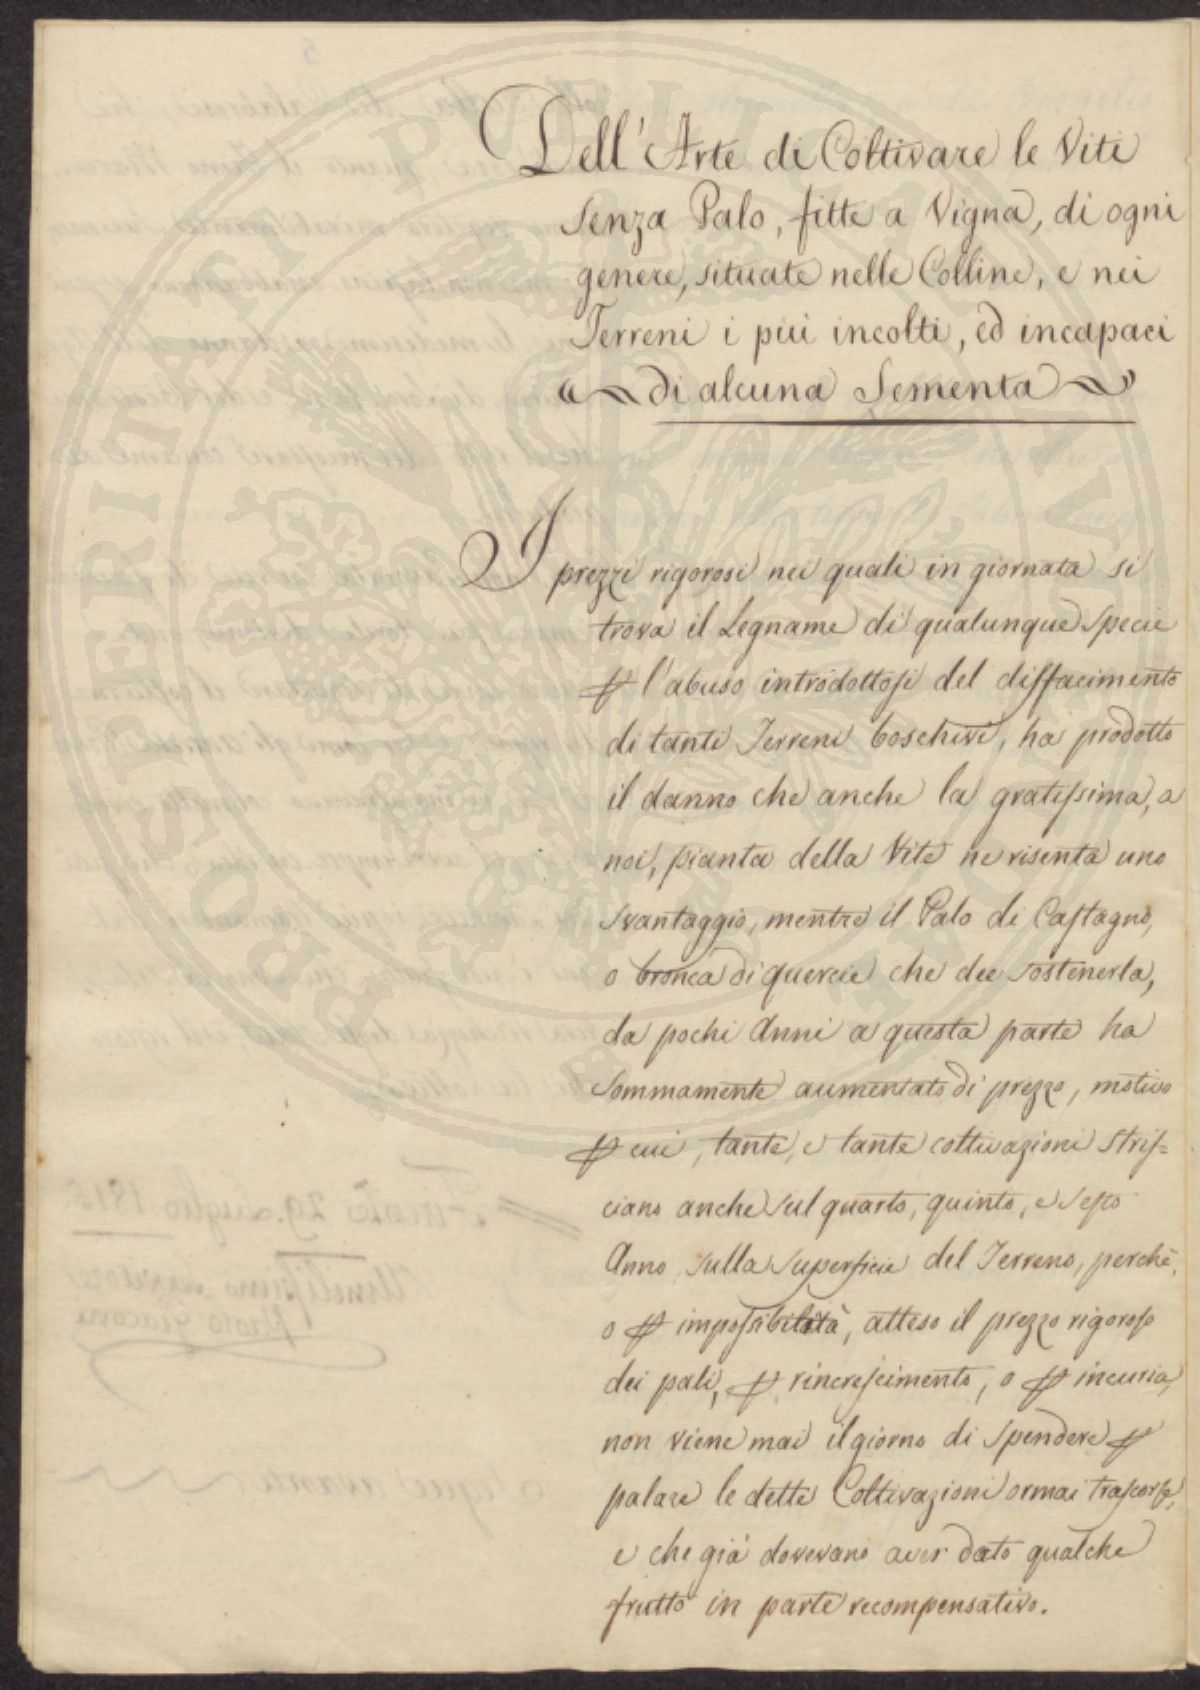 Dell'Arte di Coltivare le Viti
Senza Palo, fitte a Vigna, di ogni
genere, situate nelle Colline, e nei
Terreni i più incolti, ed incapaci
di alcuna Sementa
I prezzi rigorosi nei quali in giornata si
trova il Legname di qualunque Specie
ꝑ l'abuso introdottosi del diffacimento
di tanti Terreni boschivi, ha prodotto
il danno che anche la gratissima, a
noi, pianta della Vite ne risenta uno
svantaggio, mentre il Palo di Castagno,
o bronca di quercie che dee sostenerla,
da pochi Anni a questa parte ha
Sommamente aumentato di prezzo, motivo
ꝑ cui, tante, e tante coltivazioni Stris=
ciano anche sul quarto, quinto, e Sesto
Anno sulla Superficie del Terreno, perchè,
o ꝑ impossibilità, atteso il prezzo rigoroso
dei pali, ꝑ rincrescimento, o ꝑ incuria,
non viene mai il giorno di Spendere ꝑ
palare le dette Coltivazioni ormai trascorse,
e che già dovevano aver dato qualche
frutto in parte recompensativo.